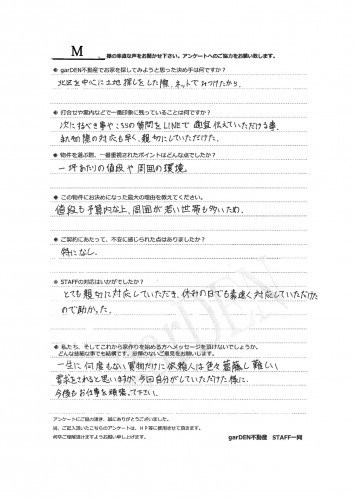 M 様の率直な声をお聞かせ下さい。アンケートへのご協力をお願い致します。
※ garDEN不動産でお家を探してみようと思った決め手は何ですか？
北区を中心に土地探しをした際、ネットでみつけたから。
※ 打合せや案内などで一番印象に残っていることは何ですか？
次にするべき事やこちらの質問をLINEで適宜伝えていただける事。
契約際の対応も早く、親切にしていただけた。
※ 物件を選ぶ際、一番重視されたポイントはどんな点でしたか？
一坪あたりの値段や周囲の環境。
※ この物件にお決めになった最大の理由を教えてください。
値段も予算内な上、周囲が若い世帯も多いため。
※ ご契約にあたって、不安に感じられた点はありましたか？
特になし。
※ STAFFの対応はいかがでしたか？
とても親切に対応していただき、休みの日でも素速く対応していただけた
ので助かった。
※ 私たち、そしてこれから家作りを始める方へメッセージを頂けないでしょうか。
どんな些細な事でも結構です。忌憚のないご意見をお願いします。
一生に何度もない買物だけに依頼人は色々葛藤し難しい
要求をされると思いますが、今回自分がしていただけた様に
今後もお仕事を頑張って下さい。
アンケートにご協力頂き、誠にありがとうございました。
尚、ご記入頂いたこちらのアンケートは、ＨＰ等に使用させて頂きます。
何卒ご理解頂けますようお願い申し上げます。
garDEN不動産 STAFF一同
garDEN